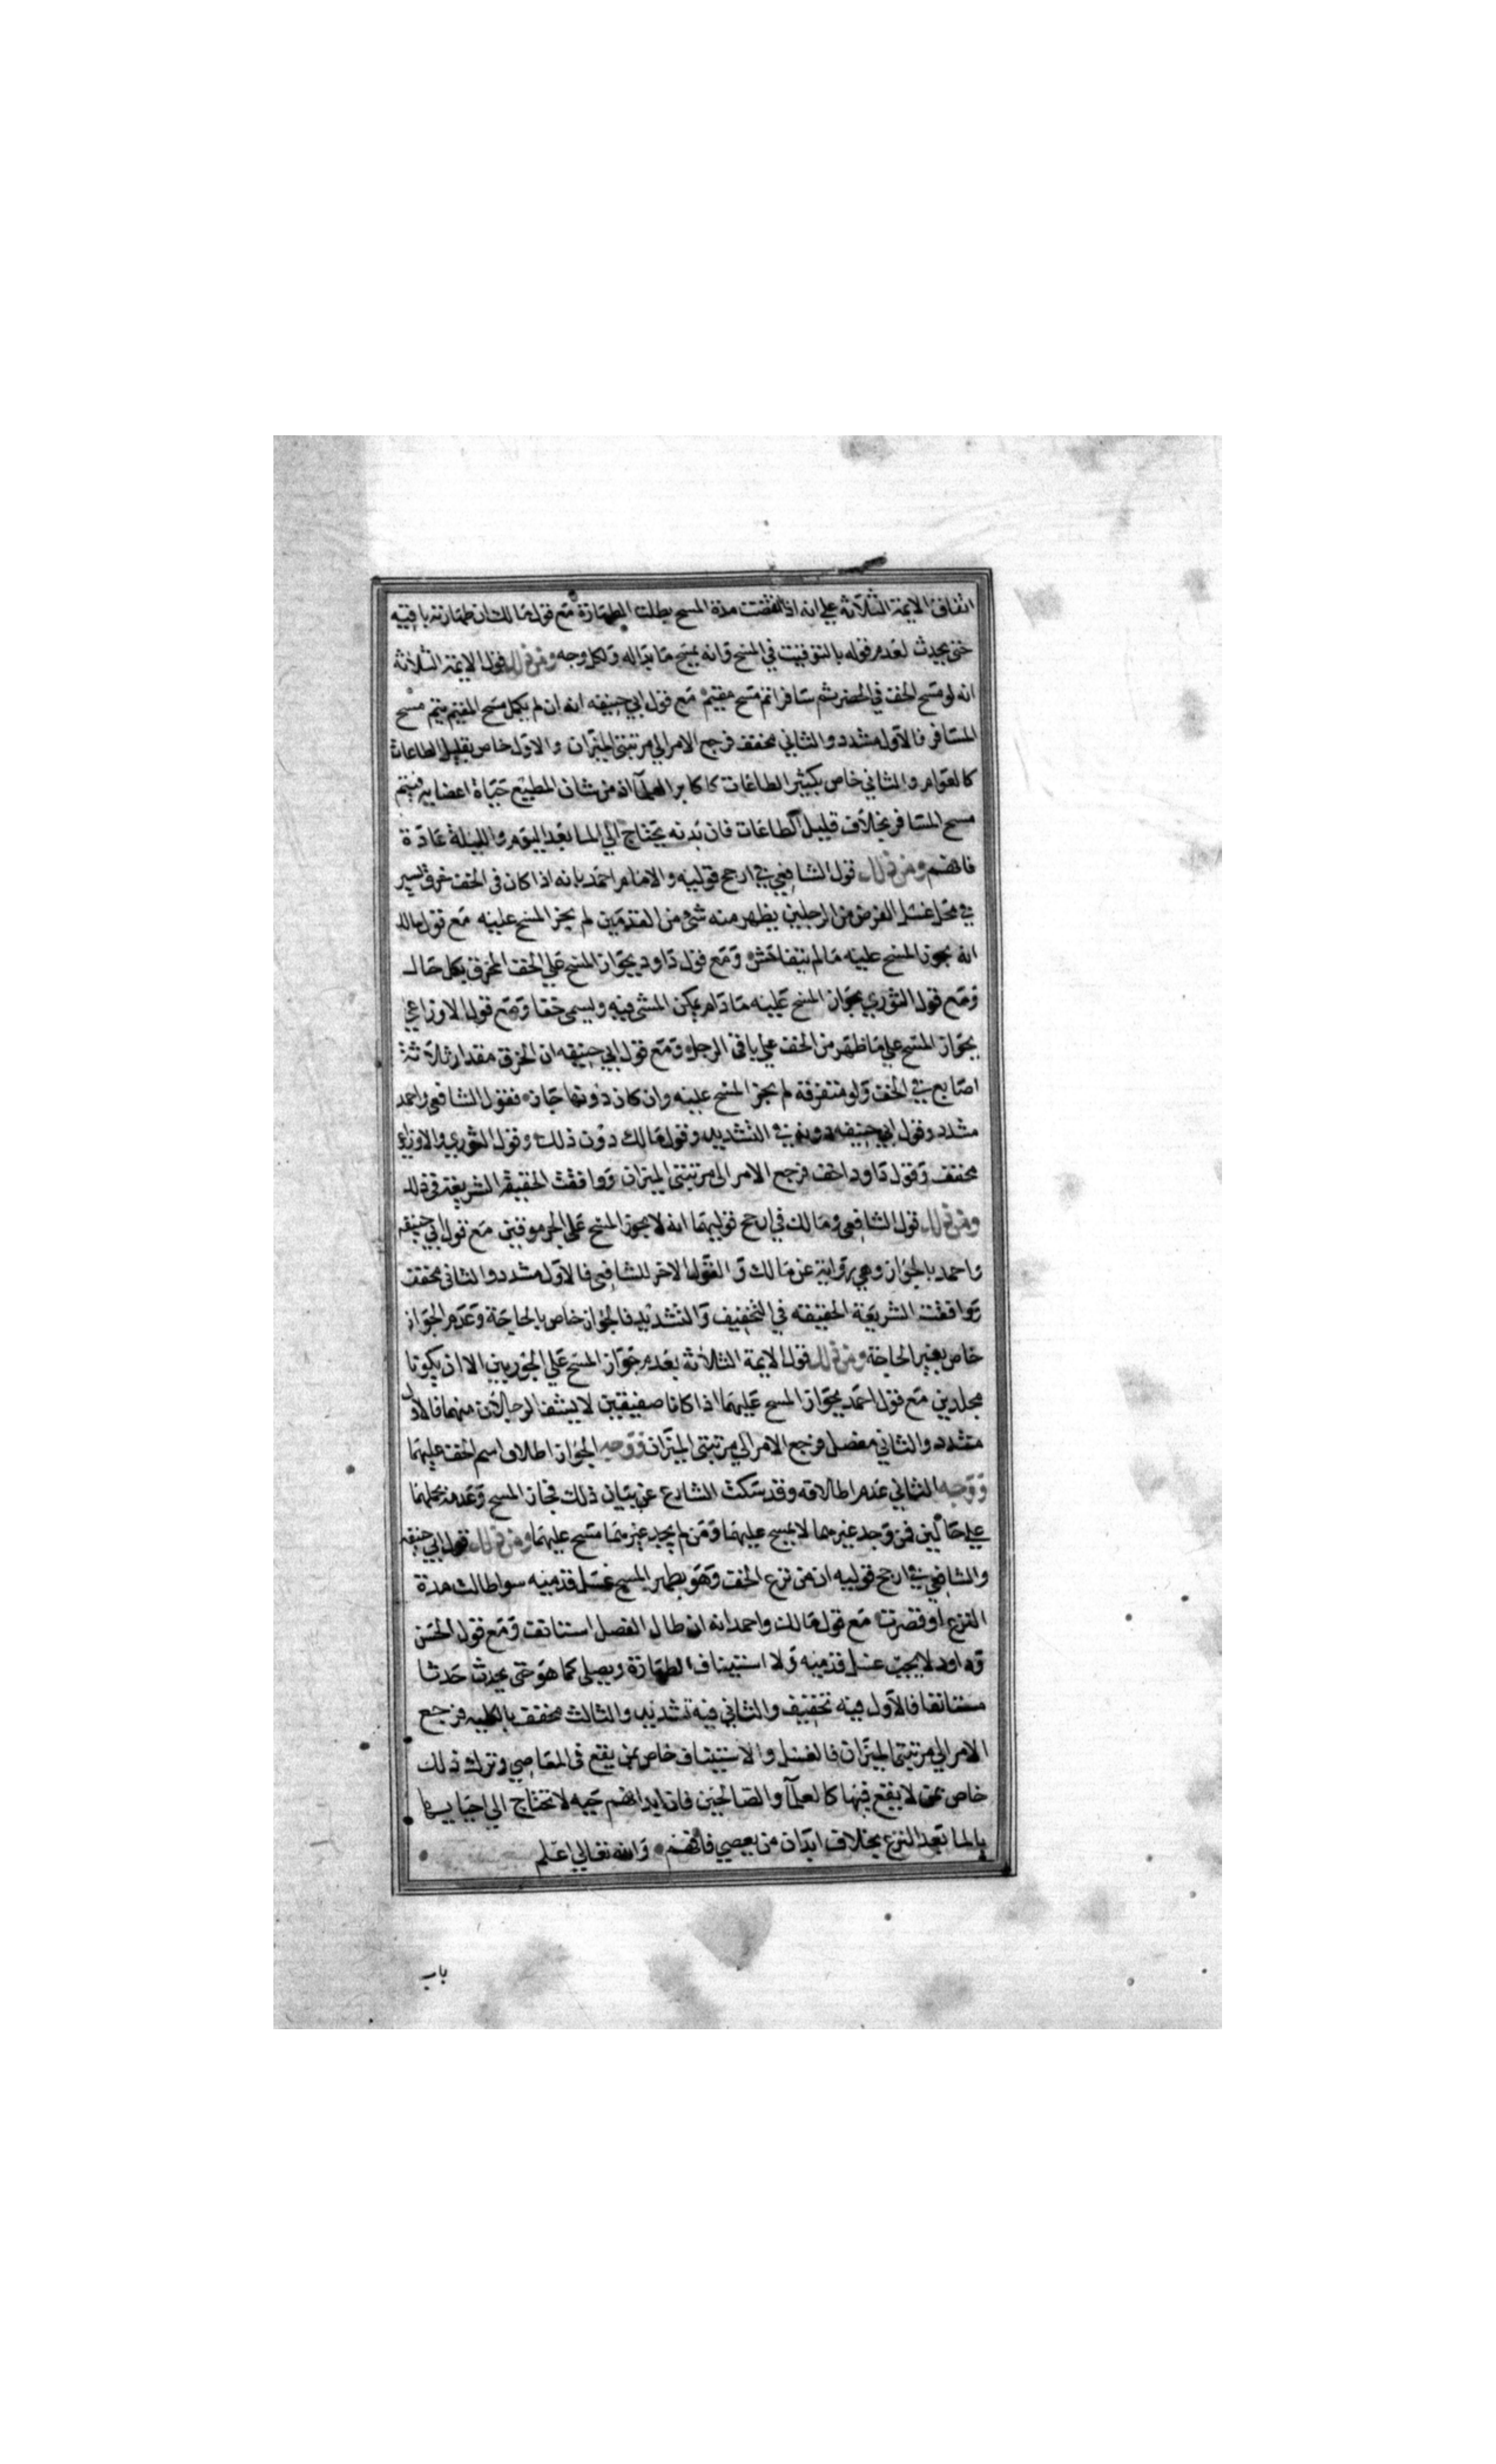 اتفاق الايمة الثلاثة علي انه اذا انقضت مدة المسح بطلت الطهارة مع قول مالك ان طهارته باقية
حتي يحدث لعدم قوله بالتوقيت في المسح وانه يمسح ما بداله ولكل وجه ومن ذلك قول الايمة الثلاثة
انه لو مسح الخف في الحضر ثم سافر اتم مسح مقيم مع قول ابي حنيفه انه ان لم يكمل مسح المقيم يتم مسح
المسافر فالاول مشدد والثاني مخفف فرجع الامر الي مرتبتي الميزان والاول خاص بقليل الطاعات
كالعوام والثاني خاص بكثير الطاعات كاكابر العلمآ اذ من شان المطيع حياة اعضايه فيتم
مسح المسافر بخلاف قليل الطاعات فان بدنه يحتاج الي الما بعد اليوم والليلة عادة
فافهم ومن ذلك قول الشافعي في ارجح قوليه والامام احمد بانه اذا كان في الخف خرق يسير
في محل غسل الفرض من الرجلين يظهر منه شي من القدمين لم يجز المسح عليه مع قول مالك
انه يجوز المسح عليه ما لم يتفاحش ومع قول داود بجواز المسح علي الخف المخرق بكل حال
ومع قول الثوري بجواز المسح عليه ما دام يمكن المشي فيه ويسمي خفا ومع قول الاوزاعي
بجواز المسح علي ما ظهر من الخف علي باقي الرجل ومع قول ابي حنيفه ان الخرق مقدار ثلاثة
اصابع في الخف ولو متفرقة لم يجز المسح عليه وان كان دونها جاز فقول الشافعي واحمد
مشدد وقول ابي حنيفه دونه في التشديد وقول مالك دون ذلك وقول الثوري والاوزاعي
مخفف وقول داود اخف فرجع الامر الي مرتبتي الميزان ووافقت الحقيقة الشريعة في ذلك
ومن ذلك قول الشافعي ومالك في ارجح قوليهما انه لا يجوز المسح علي الجرموقين مع قول ابي حنيفه
واحمد بالجواز وهي رواية عن مالك والقول الاخر للشافعي فالاول مشدد والثاني مخفف
ووافقت الشريعة الحقيقه في التخفيف والتشديد فالجواز خاص بالحاجة وعدم الجواز
خاص بغير الحاجة ومن ذلك قول الايمة الثلاثة بعدم جواز المسح علي الجوربين الا ان يكونا
مجلدين مع قول احمد بجواز المسح عليهما اذا كانا صفيقين لا يشف الرجلان منهما فالاول
مشدد والثاني مفصل فرجع الامر الي مرتبتي الميزان ووجه الجواز اطلاق اسم الخف عليهما
ووجه الثاني عدم اطلاقه وقد سكت الشارع عن بيان ذلك فجاز المسح وعدمه بحملهما
علي حالين فمن وجد غيرهما لا يمسح عليهما ومن لم يجد غيرهما مسح عليهما ومن ذلك قول ابي حنيفه
والشافعي في ارجح قوليه ان من نزع الخف وهو بطهر المسح غسل قدميه سوا طالت مدة
النزع او قصرت مع قول مالك واحمد انه ان طال الفصل استانف ومع قول الحسن
وداود لا يجب غسل قدميه ولا استيناف الطهارة ويصلي كما هو حتي يحدث حدثا
مستانفا فالاول فيه تخفيف والثاني فيه تشديد والثالث مخفف بالكليه فرجع
الامر الي مرتبتي الميزان فالغسل والاستيناف خاص بمن يقع في المعاصي وترك ذلك
خاص بمن لا يقع فيها كالعلمآ والصالحين فان ابدانهم حيه لا تحتاج الي احيايها
بالما بعد النزع بخلاف ابدان من يعصي فافهم والله تعالي اعلم
باب